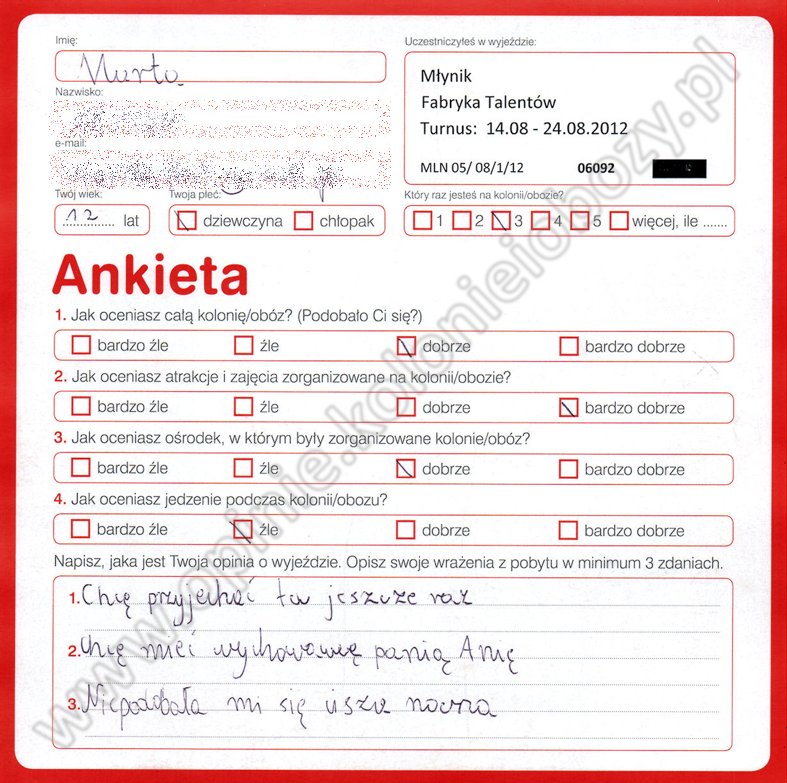 Imię:
Uczestniczyłeś w wyjeździe:
Marta
Młynik
Fabryka Talentów
Turnus: 14.08 - 24.08.2012
MLN 05/ 08/1/12 06092
Nazwisko:
e-mail:
Twój wiek:
Twoja płeć:
Który raz jesteś na kolonii/obozie?
12 lat
dziewczyna chłopak
1 2 3 4 5 więcej, ile .......
Ankieta
1. Jak oceniasz całą kolonię/obóz? (Podobało Ci się?)
bardzo źle źle dobrze bardzo dobrze
2. Jak oceniasz atrakcje i zajęcia zorganizowane na kolonii/obozie?
bardzo źle źle dobrze bardzo dobrze
3. Jak oceniasz ośrodek, w którym były zorganizowane kolonie/obóz?
bardzo źle źle dobrze bardzo dobrze
4. Jak oceniasz jedzenie podczas kolonii/obozu?
bardzo źle źle dobrze bardzo dobrze
Napisz, jaka jest Twoja opinia o wyjeździe. Opisz swoje wrażenia z pobytu w minimum 3 zdaniach.
1. Chcę przyjechać tu jeszcze raz
2. Chcę mieć wychowawcę panią Anię
3. Niepodobała mi się cisza nocna
www.opinie.kolonieiobozy.pl